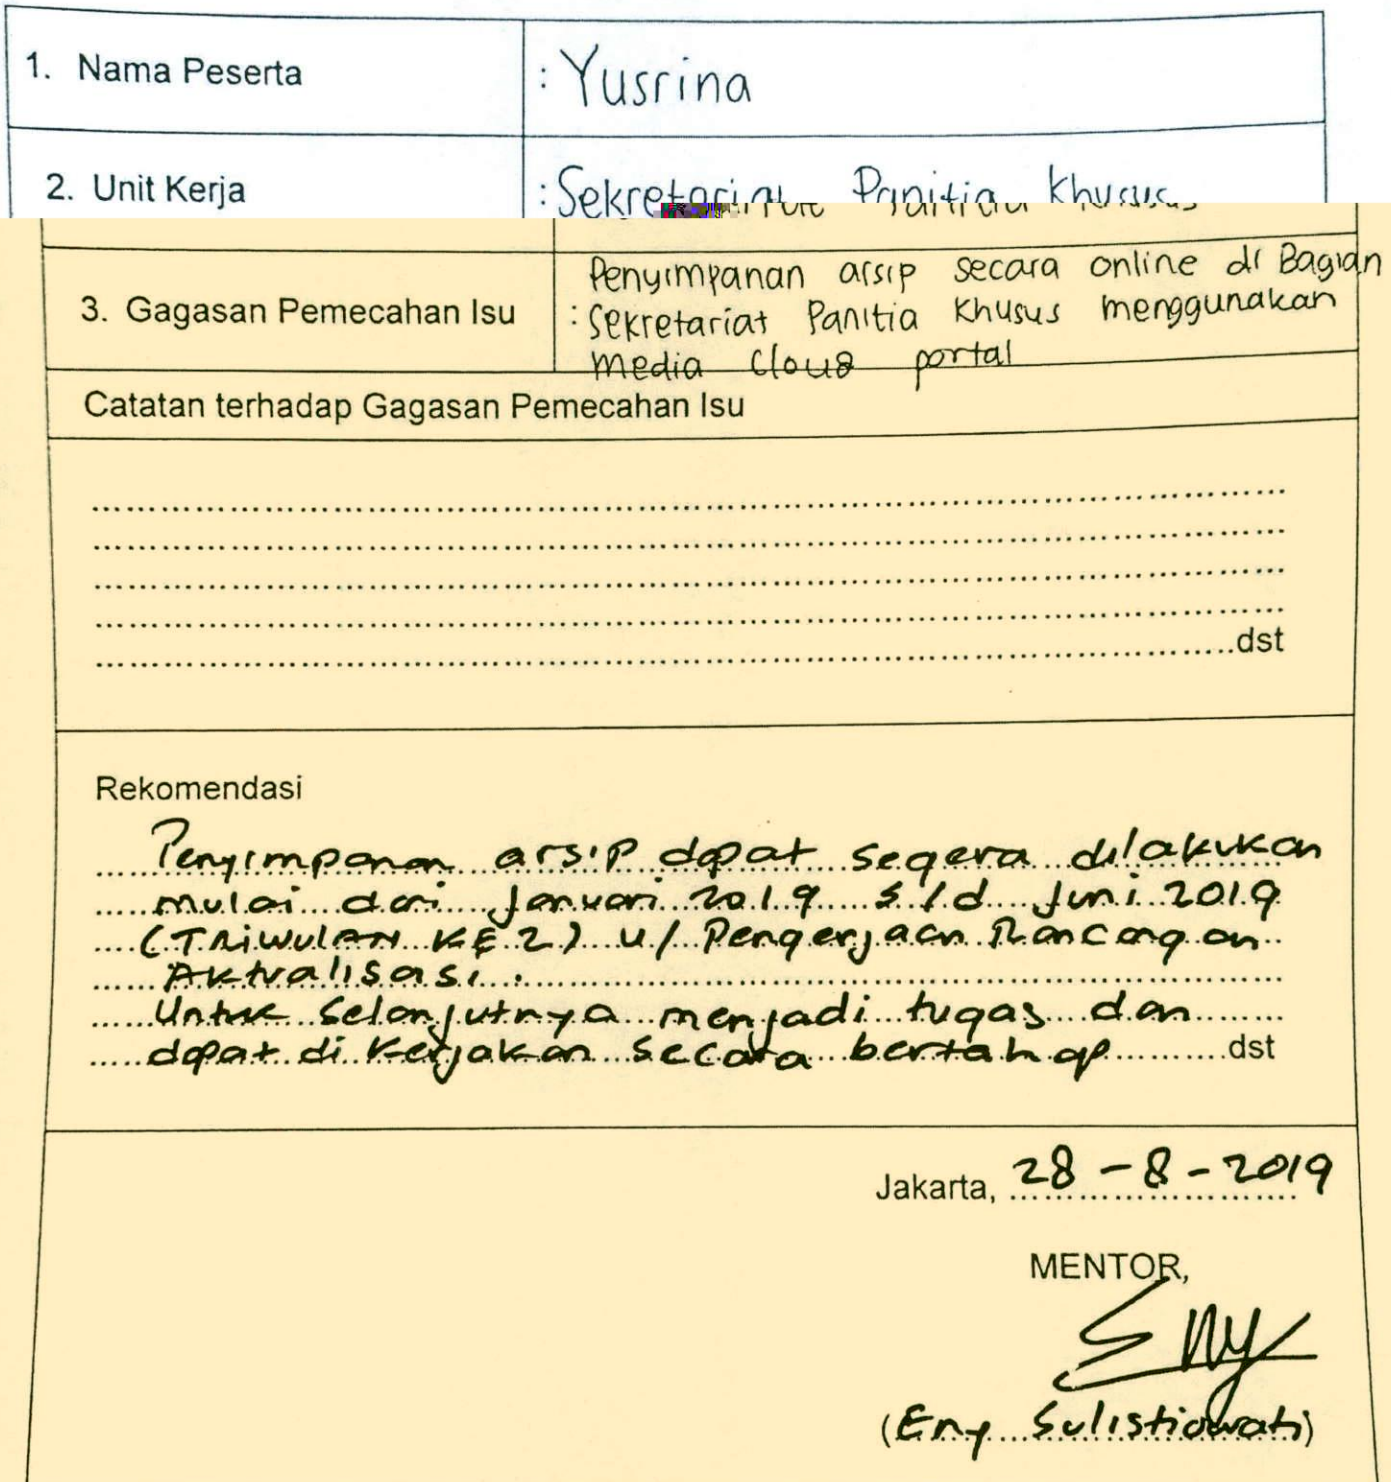 1. Nama Peserta : Yusrina
2. Unit Kerja : Sekretariat Panitia Khusus
3. Gagasan Pemecahan Isu : Penyimpanan arsip secara online di Bagian
Sekretariat Panitia Khusus menggunakan
media Cloud portal
Catatan terhadap Gagasan Pemecahan Isu
dst
Rekomendasi
Penyimpanan arsip dapat segera dilakukan
mulai dari Januari 2019 s/d Juni 2019
(TRIWULAN KE 2) u/ Pengerjaan Rancangan
Aktualisasi.
Untuk selanjutnya menjadi tugas dan
dapat di kerjakan secara bertahap dst
Jakarta, 28-8-2019
MENTOR,
Eny
(Eny Sulistiowati)